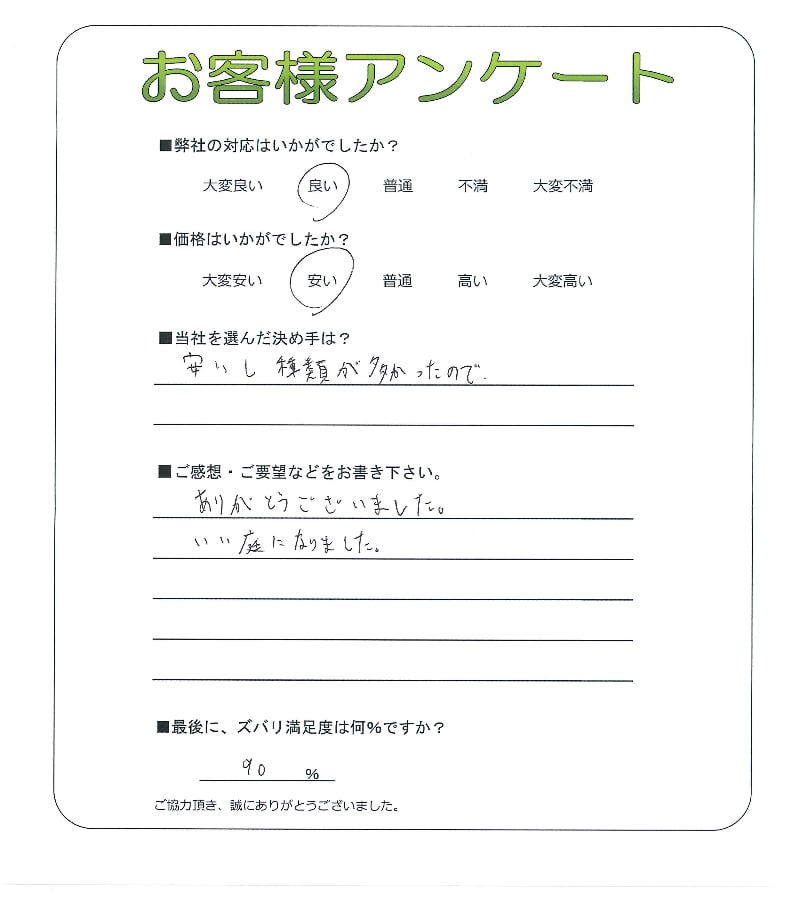 お客様アンケート
■弊社の対応はいかがでしたか？
大変良い 良い 普通 不満 大変不満
■価格はいかがでしたか？
大変安い 安い 普通 高い 大変高い
■当社を選んだ決め手は？
安いし種類が多かったので.
■ご感想・ご要望などをお書き下さい。
ありがとうございました。
いい庭になりました。
■最後に、ズバリ満足度は何%ですか？
90 %
ご協力頂き、誠にありがとうございました。